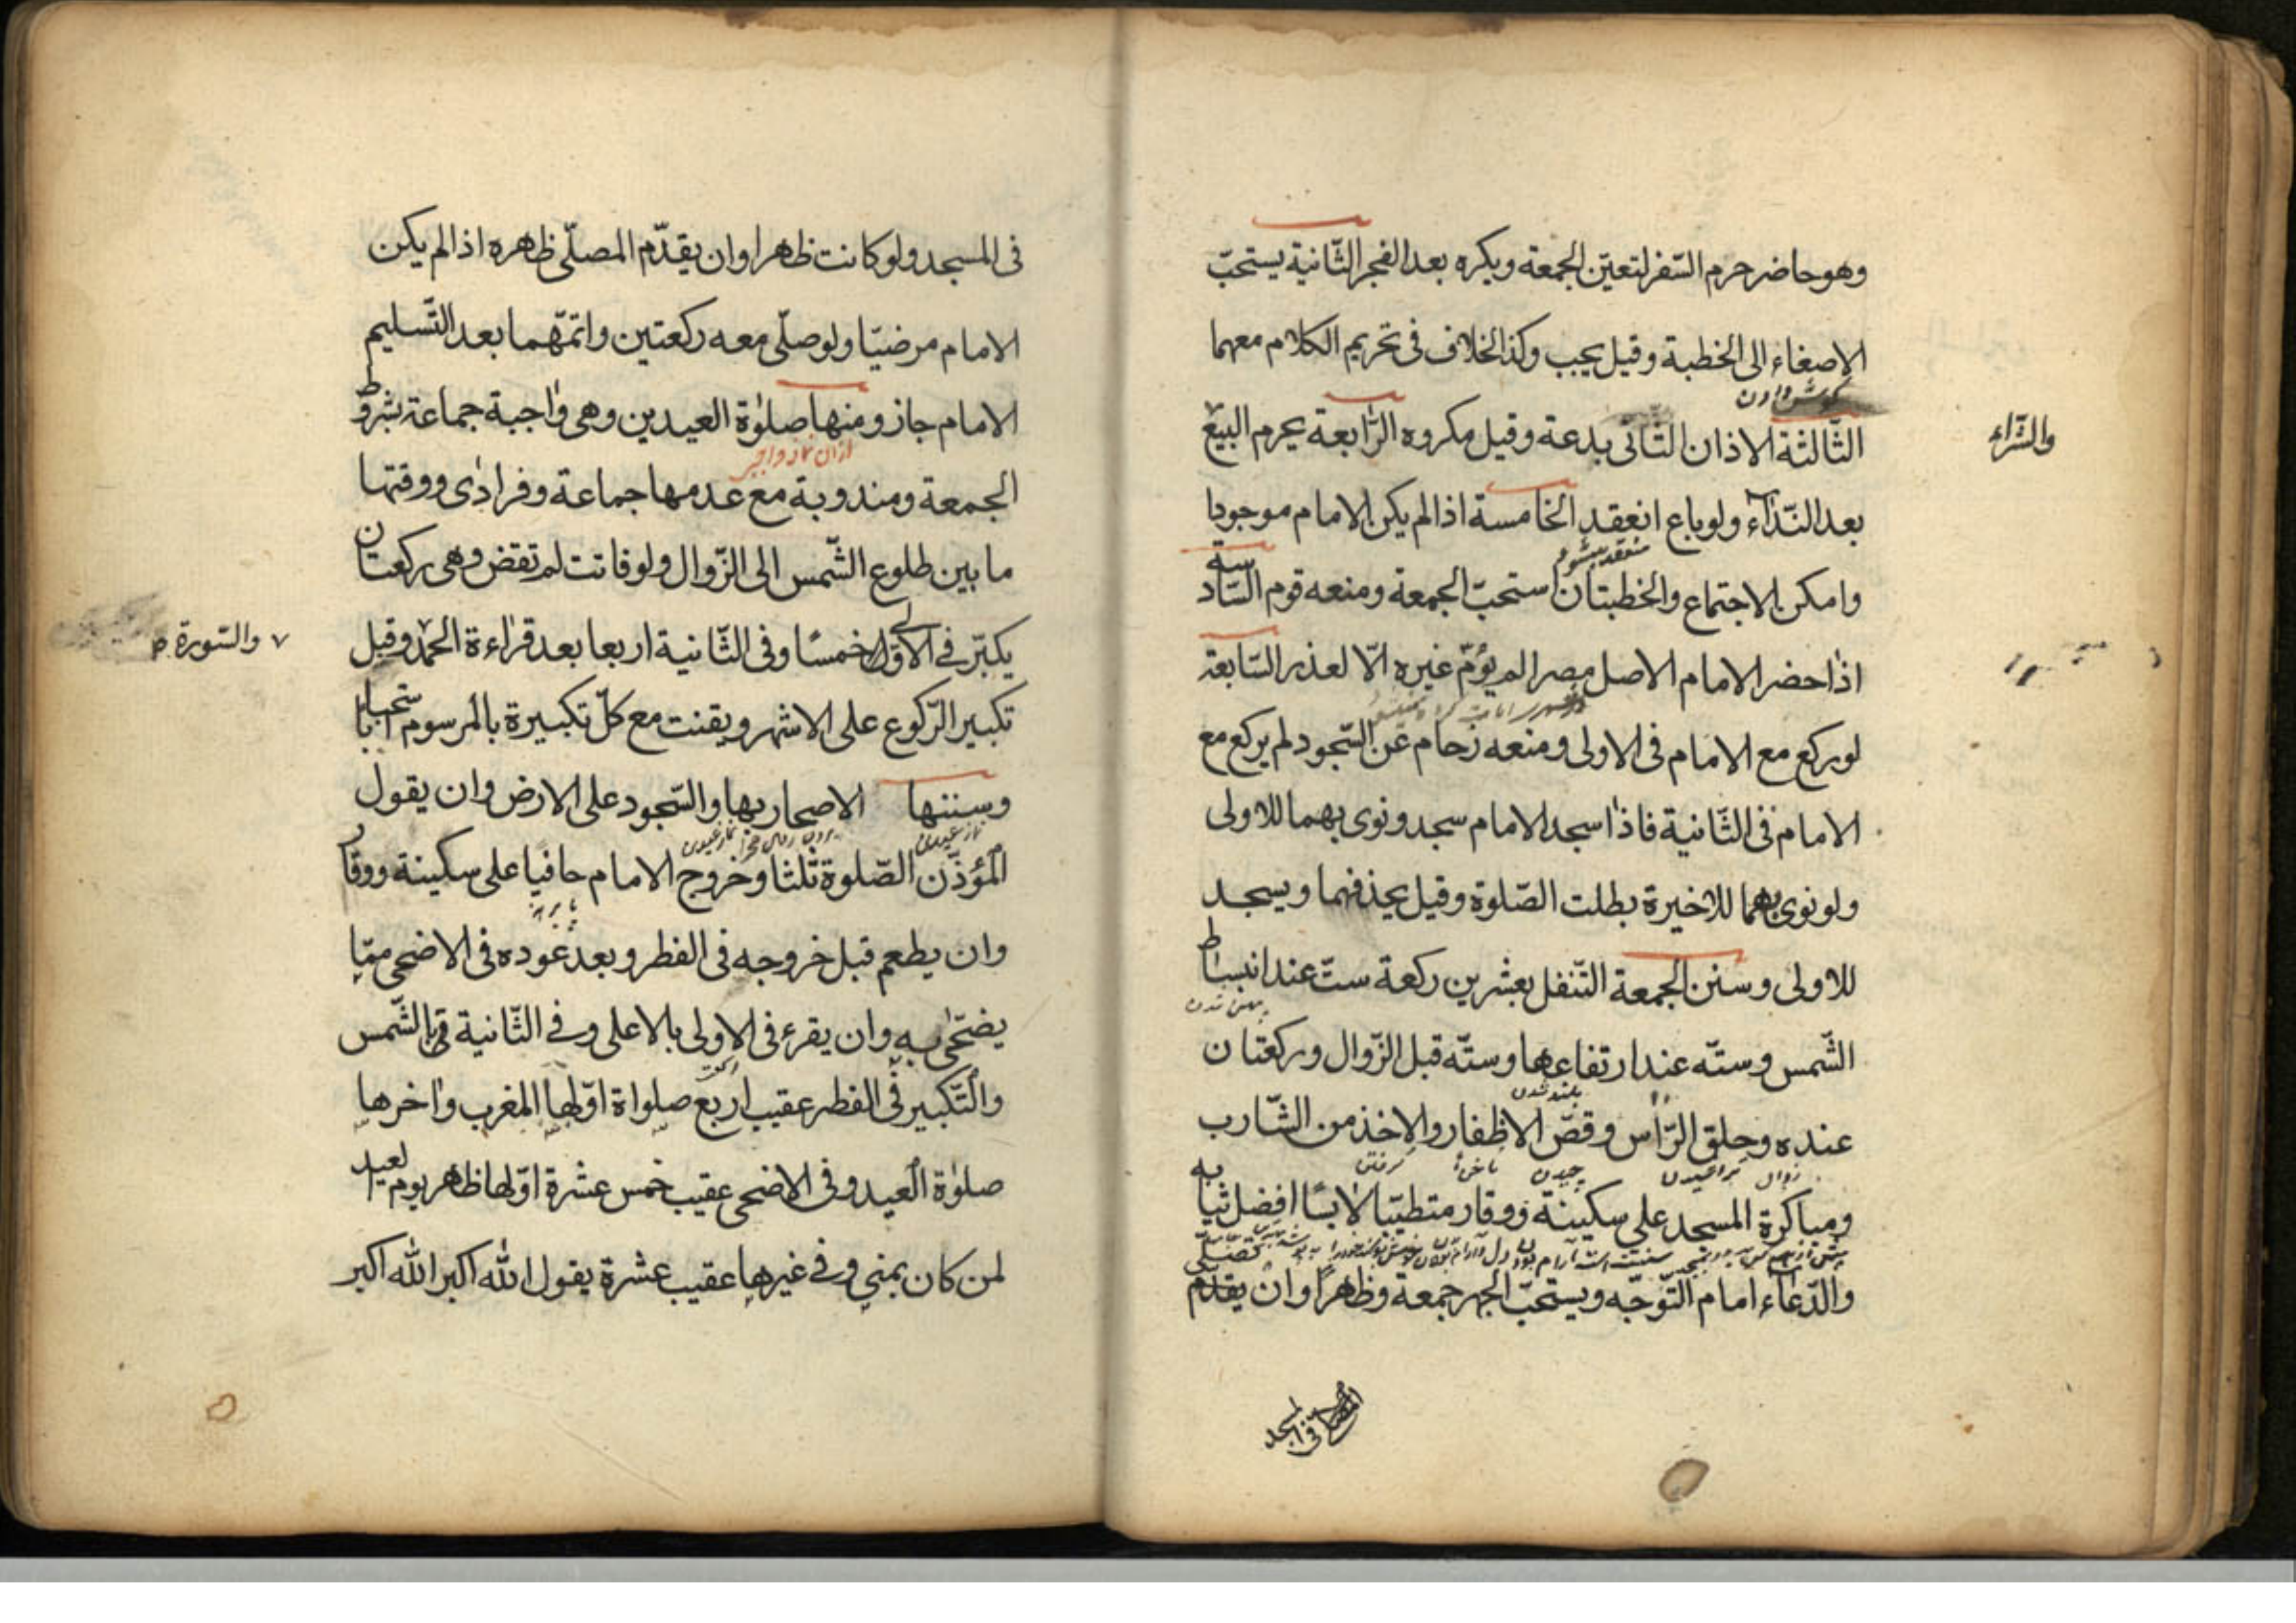 وهو حاضر حرم السّفر لتعيّن الجمعة ويكره بعد الفجر الثّانية يستحبّ
الاصغاء الى الخطبة وقيل يجب وكذا الخلاف فى تحريم الكلام معهما
كوش دادن
الثّالثة الاذان الثّانى بدعة وقيل مكروه الرّابعة يحرم البيع
والشّراء
بعد النّداء ولو باع انعقد الخامسة اذا لم يكن الامام موجودا
منعقد ميشود
وامكن الاجتماع والخطبتان استحبّ الجمعة ومنعه قوم السّادسة
اذا حضر الامام الاصل مصرا لم يؤمّ غيره الّا لعذر السّابعة
لو ركع مع الامام فى الاولى ومنعه زحام عن السّجود لم يركع مع
الامام فى الثّانية فاذا سجد الامام سجد ونوى بهما للاولى
ولو نوى بهما للاخيرة بطلت الصّلوة وقيل يحذفهما ويسجد
للاولى وسنن الجمعة التّنفل بعشرين ركعة ستّ عند انبساط
پهن شدن
الشّمس وستّه عند ارتفاعها وستّه قبل الزّوال وركعتان
بلند شدن
عنده وحلق الرّاس وقصّ الاظفار والاخذ من الشّارب
زوال تراشيدن چيدن ناخن كرفتن
ومباكرة المسجد على سكينة ووقار متطيّبا لابسًا افضل ثيابه
والدّعاء امام التّوجّه ويستحبّ الجهر جمعة وظاهرًا وان يقدم
المصلّى فى المسجد
فى المسجد ولو كانت ظاهرا وان يقدّم المصلّى ظاهره اذا لم يكن
الامام مرضيّا ولو صلّى معه ركعتين واتمّهما بعد التّسليم
الامام جاز ومنها صلوٰة العيدين وهى واجبة جماعة بشروط
الجمعة ومندوبة مع عدمها جماعة وفرادى ووقتها
ما بين طلوع الشّمس الى الزّوال ولو فاتت لم تقض وهى ركعتان
يكبّر فى الاولى خمسًا وفى الثّانية اربعا بعد قراءة الحمد وقبل
والسّورة
تكبير الرّكوع على الاشهر ويقنت مع كلّ تكبيرة بالمرسوم استحبابا
وسننها الاصحار بها والسّجود على الارض وان يقول
نماز عيدين
المؤذّن الصّلوة ثلثا وخروج الامام حافيا على سكينة ووقار
وان يطعم قبل خروجه فى الفطر وبعد عوده فى الاضحى ممّا
يضحّى به وان يقرء فى الاولى بالاعلى وفى الثّانية قرأ الشّمس
والتّكبير فى الفطر عقيب اربع صلواة اوّلها المغرب واخرها
صلوٰة العيد وفى الاضحى عقيب خمس عشرة اوّلها ظاهر يوم العيد
لمن كان بمنى وفى غيرها عقيب عشرة يقول الله اكبر الله اكبر